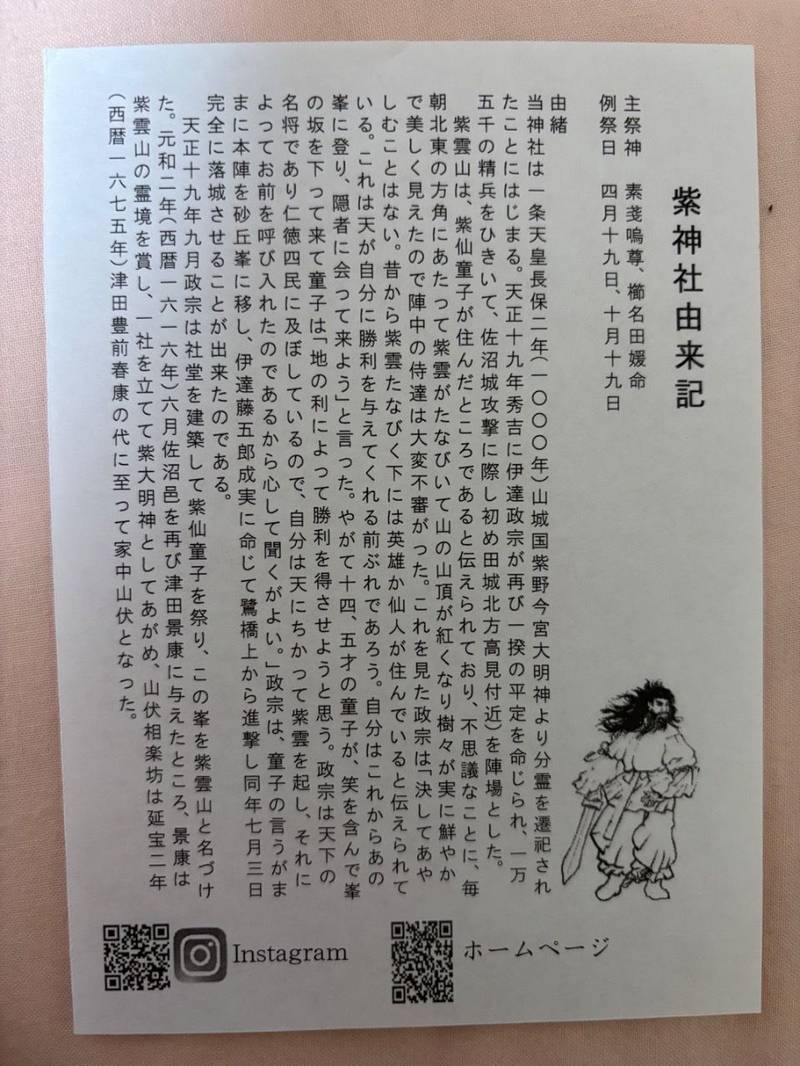 紫神社由来記
主祭神　素戔嗚尊、櫛名田媛命
例祭日　四月十九日、十月十九日
由緒
当神社は一条天皇長保二年(一〇〇〇年)山城国紫野今宮大明神より分霊を遷祀され
たことにはじまる。天正十九年秀吉に伊達政宗が再び一揆の平定を命じられ、一万
五千の精兵をひきいて、佐沼城攻撃に際し初め田城北方高見付近)を陣場とした。
紫雲山は、紫仙童子が住んだところであると伝えられており、不思議なことに、毎
朝北東の方角にあたって紫雲がたなびいて山の山頂が紅くなり樹々が実に鮮やか
で美しく見えたので陣中の侍達は大変不審がった。これを見た政宗は「決してあや
しむことはない。昔から紫雲たなびく下には英雄か仙人が住んでいると伝えられて
いる。これは天が自分に勝利を与えてくれる前ぶれであろう。自分はこれからあの
峯に登り、隠者に会って来よう」と言った。やがて十四、五才の童子が、笑を含んで峯
の坂を下って来て童子は「地の利によって勝利を得させようと思う。政宗は天下の
名将であり仁徳四民に及ぼしているので、自分は天にちかって紫雲を起し、それに
よってお前を呼び入れたのであるから心して聞くがよい。」政宗は、童子の言うがま
まに本陣を砂丘峯に移し、伊達藤五郎成実に命じて鷺橋上から進撃し同年七月三日
完全に落城させることが出来たのである。
天正十九年九月政宗は社堂を建築して紫仙童子を祭り、この峯を紫雲山と名づけ
た。元和二年(西暦一六一六年)六月佐沼邑を再び津田景康に与えたところ、景康は
紫雲山の霊境を賞し、一社を立てて紫大明神としてあがめ、山伏相楽坊は延宝二年
(西暦一六七五年)津田豊前春康の代に至って家中山伏となった。
Instagram
ホームページ